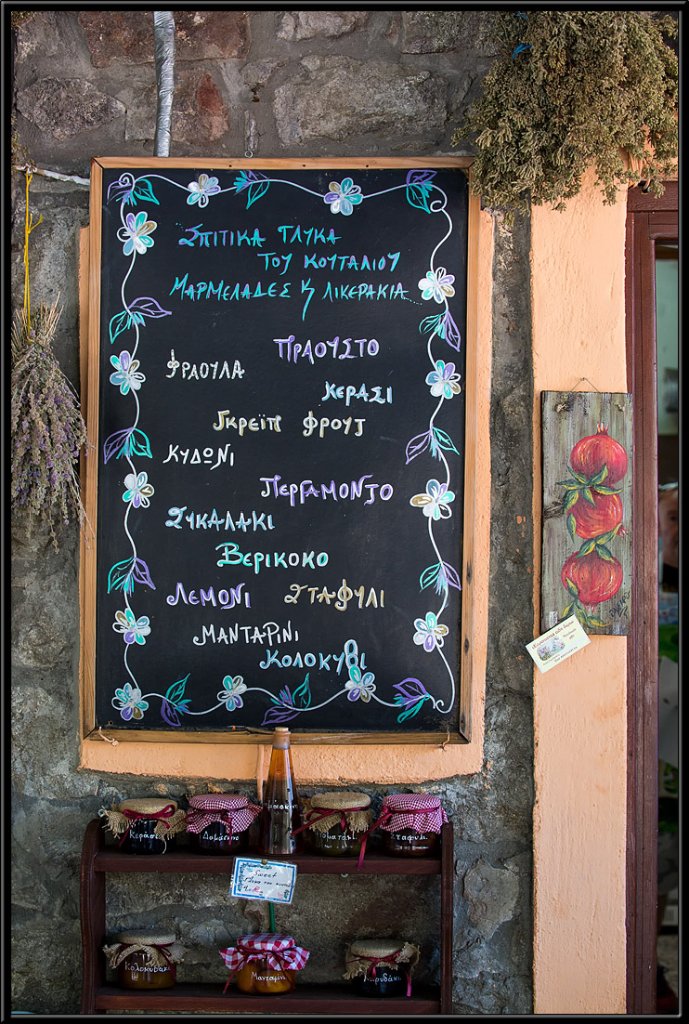 ΣΠΙΤΙΚΑ ΓΛΥΚΑ
ΤΟΥ ΚΟΥΤΑΛΙΟΥ
ΜΑΡΜΕΛΑΔΕΣ Κ ΛΙΚΕΡΑΚΙΑ
ΠΡΑΟΥΣΤΟ
ΦΡΑΟΥΛΑ
ΚΕΡΑΣΙ
ΓΚΡΕΙΠ ΦΡΟΥΤ
ΚΥΔΩΝΙ
ΠΕΡΓΑΜΟΝΤΟ
ΣΥΚΑΛΑΚΙ
ΒΕΡΙΚΟΚΟ
ΛΕΜΟΝΙ ΣΤΑΦΥΛΙ
ΜΑΝΤΑΡΙΝΙ
ΚΟΛΟΚΥΘΙ
Κεράσι
Sweet